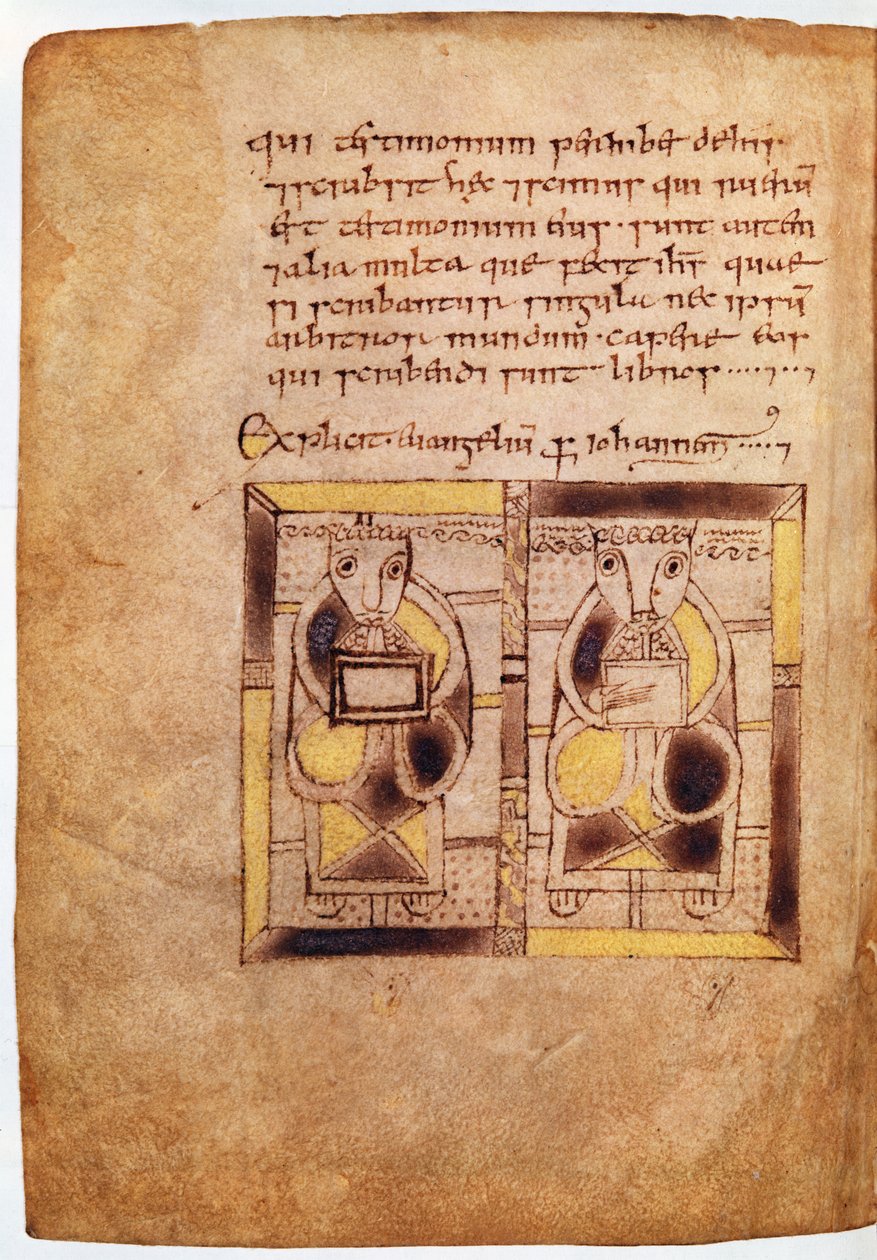 qui testimonium perhibe de his
⁊ scribsit hec ⁊ scimus qui uerū
est testimonium eius · sunt autem
⁊ alia multa que fecit ihs quae
si scribantur singula nec ipsū
arbitror mundum · capere eos
qui scribendi sunt libros
Explicit · euangeliū iohannem